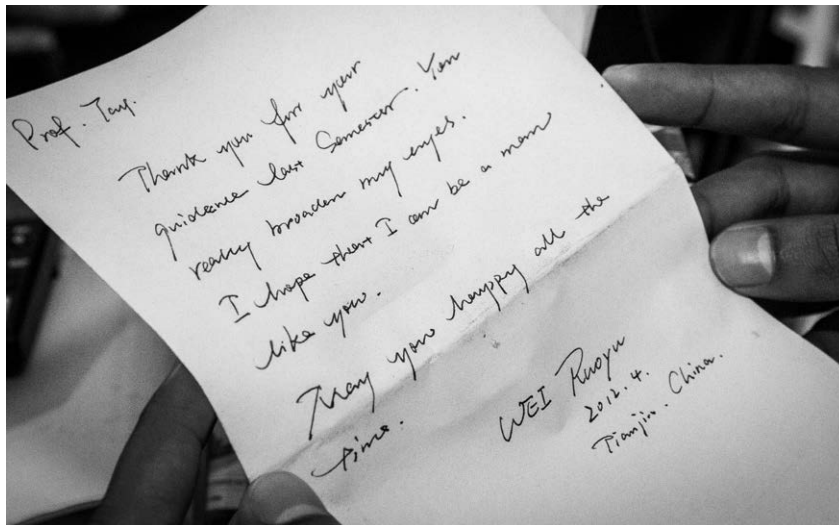 Prof. Tay.
Thank you for your
guidance last Semester. You
really broaden my eyes.
I hope that I can be a man
like you.
May you happy all the
time.
WEI Ruoyu
2012.4.
Tianjin. China.